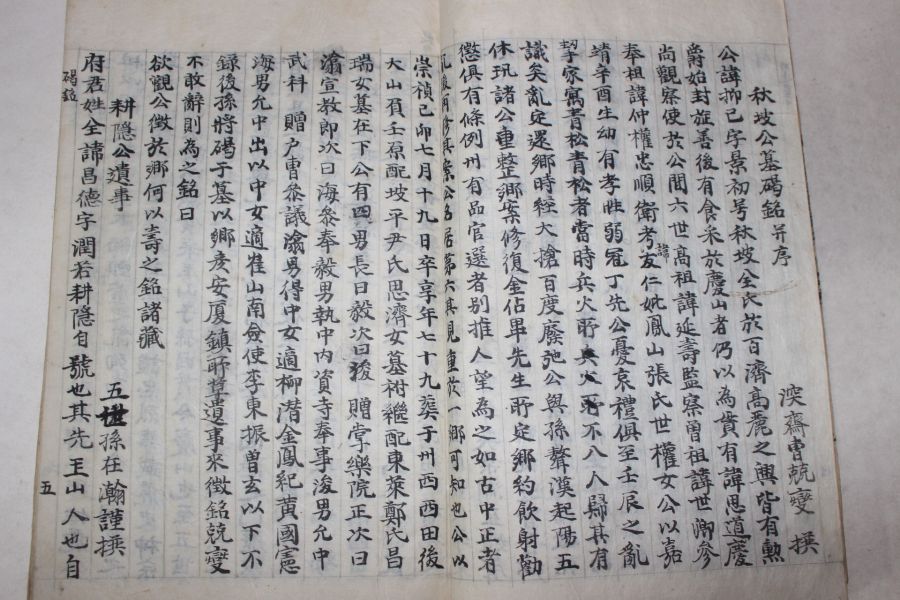 秋坡公墓碣銘并序
深齋曺兢燮 撰
公諱抑己字景初号秋坡全氏於百濟高麗之興皆有勲
爵始封旌善後有食采於慶山者仍以為貫有諱思道慶
尚觀察使於公間六世高祖諱延壽監察曾祖諱世卿參
奉祖諱仲權忠順衛考諱友仁妣鳳山張氏世權女公以嘉
靖辛酉生幼有孝性弱冠丁先公憂哀禮俱至壬辰之亂
挈家寓青松青松者當時兵火所不八人歸其有
識矣亂定還鄉時經大搶百度廢弛公與孫聱漢起陽五
休玑諸公重整鄉案修復金佔畢先生所定鄉約飲射勸
懲俱有條例州有品官選者別推人望為之如古中正者
亂後所修其案公名居第六其見重於一鄉可知也公以
崇禎己卯七月十九日卒享年七十九葬于州西西田後
大山負壬原配坡平尹氏思濟女墓祔繼配東萊鄭氏昌
瑞女墓在下公有四男長曰毅次曰𥹢 贈掌樂院正次曰
滃宣教郎次曰海叅奉毅男執中內資寺奉事浚男允中
武科 贈戶曹叅議滃男得中女適柳潛金鳳紀黃國憲
海男允中出以中女適崔山南僉使李東振曾玄以下不
錄後孫將碣于墓以鄉彦安廈鎮所爲遺事來徵銘兢燮
不敢辭則為之銘曰
欲觀公徵於鄉何以壽之銘諸藏
耕隱公遺事
五世孫在瀚謹撰
府君姓全諱昌德字潤若耕隱自號也其先玉山人也自
碣銘
五